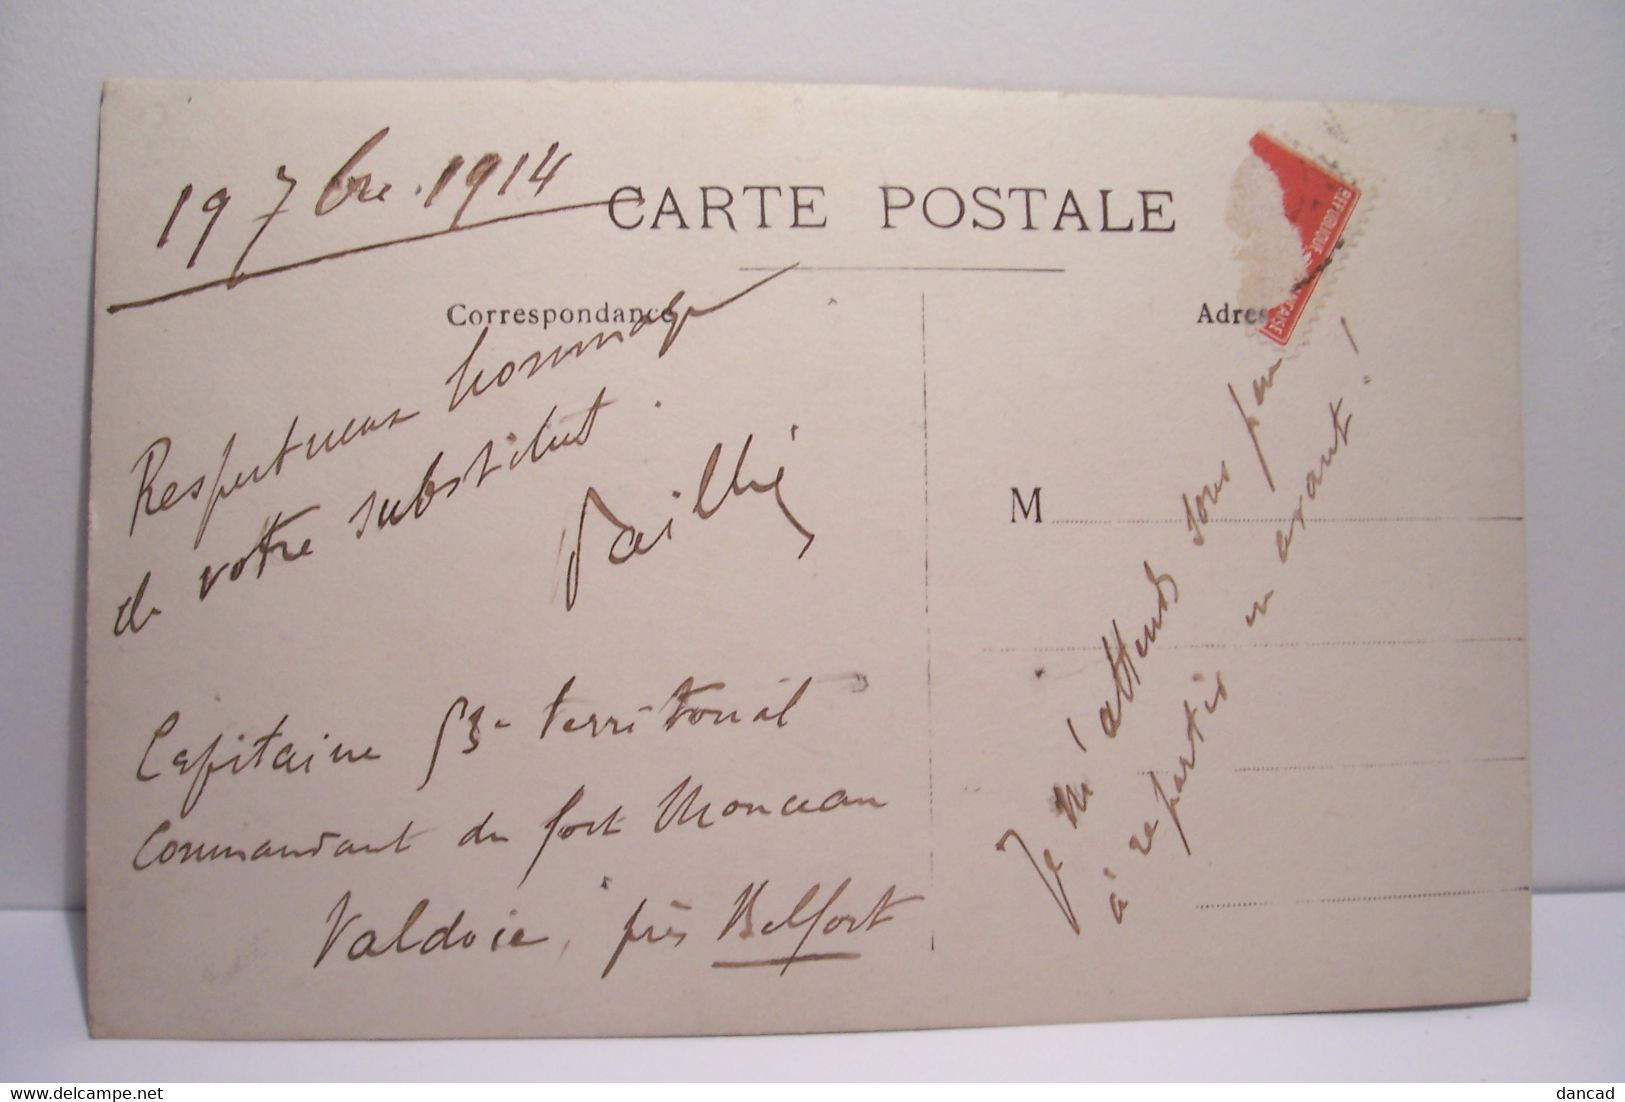 19 7bre. 1914
CARTE POSTALE
Correspondance
Respectueux hommage
de votre substitut.
Capitaine 53e territorial
Commandant du fort Monceau
Valdoie, près Belfort
Adres
RÉPUBLIQUE
M
Je m'attends sous peu
à repartir en avant !
dancad